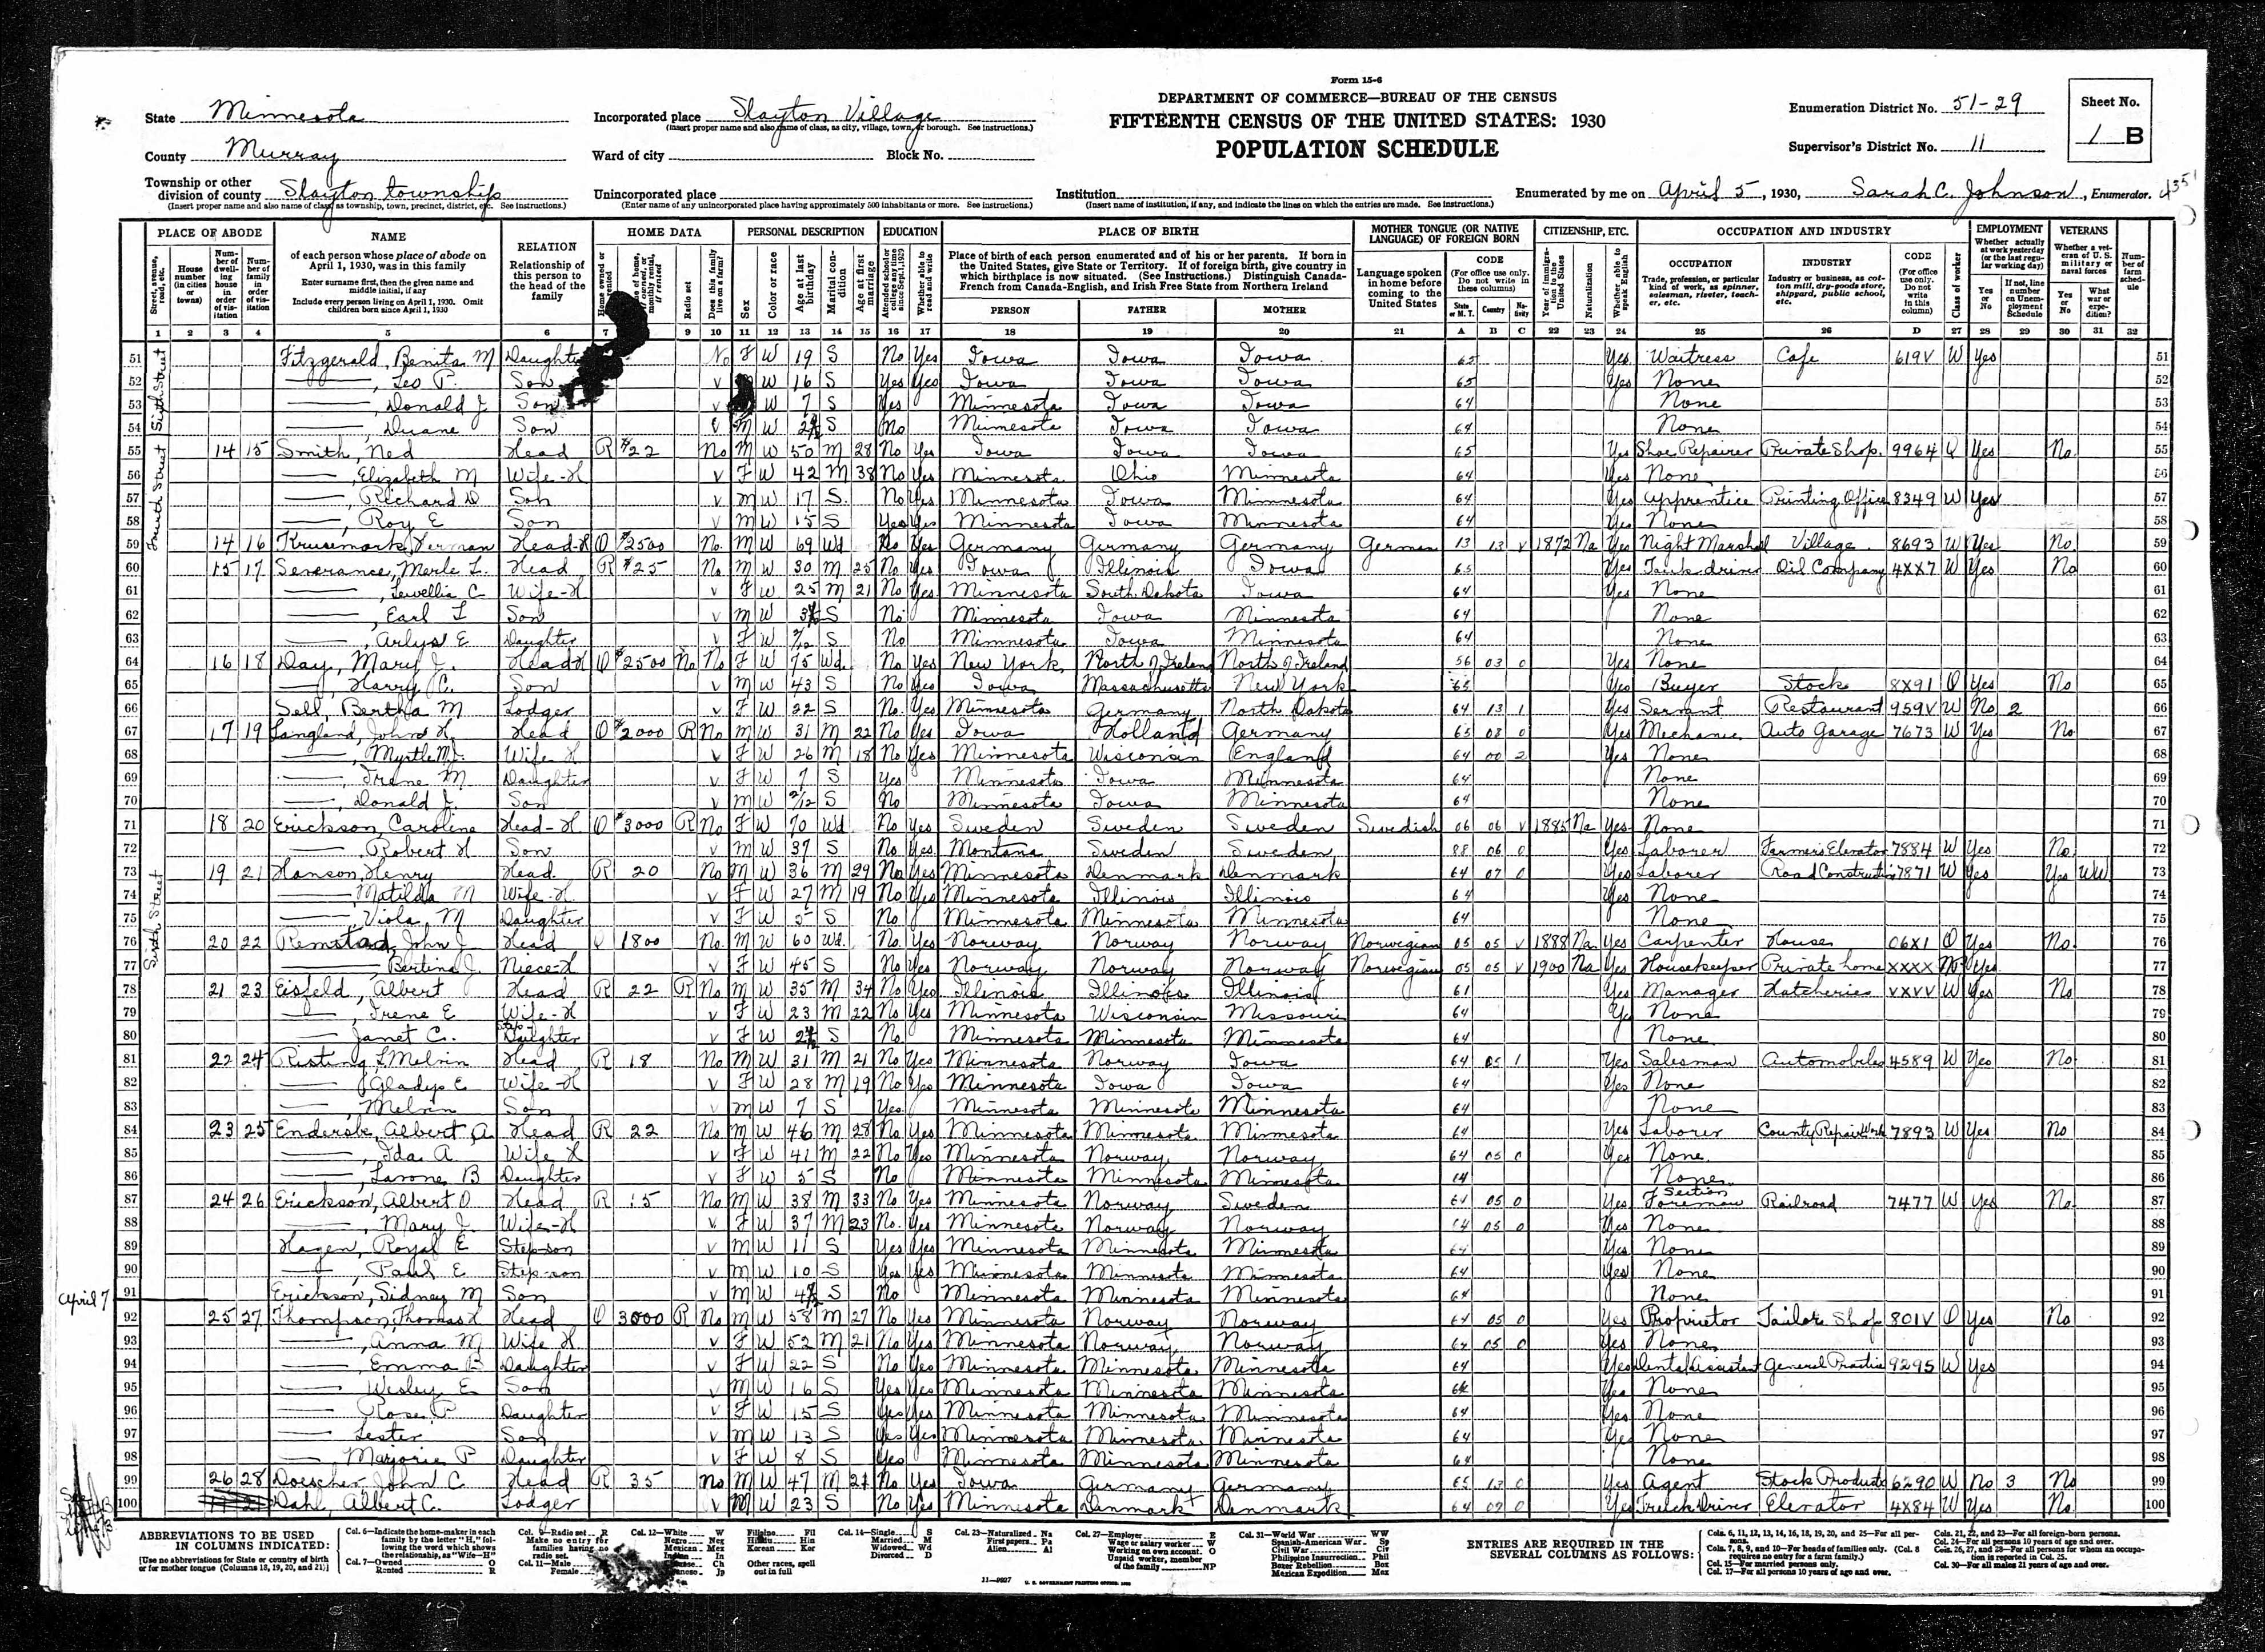 Form 15-6
DEPARTMENT OF COMMERCE—BUREAU OF THE CENSUS
FIFTEENTH CENSUS OF THE UNITED STATES: 1930
POPULATION SCHEDULE
State Minnesota
County Murray
Township or other division of county Slayton township
(Insert proper name and also name of class, as township, town, precinct, district, etc. See instructions.)
Incorporated place Slayton Village
(Insert proper name and also name of class, as city, village, town, or borough. See instructions.)
Ward of city Block No.
Unincorporated place
(Enter name of any unincorporated place having approximately 500 inhabitants or more. See instructions.)
Institution
(Insert name of institution, if any, and indicate the lines on which the entries are made. See instructions.)
Enumeration District No. 51-29
Supervisor's District No. 11
Sheet No. 1 B
Enumerated by me on April 5, 1930, Sarah C. Johnson, Enumerator.
PLACE OF ABODE NAME RELATION HOME DATA PERSONAL DESCRIPTION EDUCATION PLACE OF BIRTH MOTHER TONGUE (OR NATIVE LANGUAGE) OF FOREIGN BORN CITIZENSHIP, ETC. OCCUPATION AND INDUSTRY EMPLOYMENT VETERANS
of each person whose place of abode on April 1, 1930, was in this family
Enter surname first, then the given name and middle initial, if any
Include every person living on April 1, 1930. Omit children born since April 1, 1930
Relationship of this person to the head of the family
Place of birth of each person enumerated and of his or her parents. If born in the United States, give State or Territory. If of foreign birth, give country in which birthplace is now situated. (See Instructions.) Distinguish Canada-French from Canada-English, and Irish Free State from Northern Ireland
PERSON FATHER MOTHER
Language spoken in home before coming to the United States
1 2 3 4 5 6 7 9 10 11 12 13 14 15 16 17 18 19 20 21 A B C 22 23 24 25 26 D 27 28 29 30 31 32
51 Fitzgerald, Benita M Daughter No F W 19 S No Yes Iowa Iowa Iowa 65 Yes Waitress Cafe 619V W Yes 51
52 , Leo P. Son V W 16 S Yes Yes Iowa Iowa Iowa 65 Yes None 52
53 , Donald J Son V W 7 S Yes Minnesota Iowa Iowa 64 None 53
54 , Duane Son M W S No Minnesota Iowa Iowa 64 None 54
55 14 15 Smith, Ned Head R $22 No M W 50 M 28 No Yes Iowa Iowa Iowa 65 Yes Shoe Repairer Private Shop 9964 O Yes No 55
56 , Elizabeth M Wife-H V F W 42 M 38 No Yes Minnesota Ohio Minnesota 64 Yes None 56
57 , Richard D Son V M W 17 S No Yes Minnesota Iowa Minnesota 64 Yes Apprentice Printing Office 8349 W Yes 57
58 , Roy E Son V M W 15 S Yes Yes Minnesota Iowa Minnesota 64 Yes None 58
59 14 16 Krusemark, Herman Head-H O $2500 No M W 69 Wd No Yes Germany Germany Germany German 13 13 V 1872 Na Yes Night Marshal Village 8693 W Yes No 59
60 15 17 Severance, Merle L. Head R $25 No M W 30 M 25 No Yes Iowa Illinois Iowa 65 Yes Tank driver Oil Company 4XX7 W Yes No 60
61 , Lewellia C Wife-H V F W 25 M 21 No Yes Minnesota South Dakota Iowa 64 Yes None 61
62 , Earl L Son V M W S No Minnesota Iowa Minnesota 64 None 62
63 , Arlys E Daughter V F W S No Minnesota Iowa Minnesota 64 None 63
64 16 18 Day, Mary J. Head H O $2500 No No F W 75 Wd No Yes New York North of Ireland North of Ireland 56 03 0 Yes None 64
65 , Harry C. Son V M W 43 S No Yes Iowa Massachusetts New York 65 Yes Buyer Stock 8X91 O Yes No 65
66 Sell, Bertha M Lodger V F W 22 S No Yes Minnesota Germany North Dakota 64 13 1 Yes Servant Restaurant 959V W No 2 66
67 17 19 Langland, John H. Head O $2000 R No M W 31 M 22 No Yes Iowa Holland Germany 65 08 0 Yes Mechanic Auto Garage 7673 W Yes No 67
68 , Myrtle M.J. Wife H V F W 26 M 18 No Yes Minnesota Wisconsin England 64 00 2 Yes None 68
69 , Irene M Daughter V F W 7 S Yes Minnesota Iowa Minnesota 64 None 69
70 , Donald J. Son V M W S No Minnesota Iowa Minnesota 64 None 70
71 18 20 Erickson, Caroline Head-H O $3000 R No F W 70 Wd No Yes Sweden Sweden Sweden Swedish 06 06 V 1885 Na Yes None 71
72 , Robert H Son V M W 37 S No Yes Montana Sweden Sweden 88 06 0 Yes Laborer Farmers Elevator 7884 W Yes No 72
73 19 21 Hanson, Henry Head R 20 No M W 36 M 29 No Yes Minnesota Denmark Denmark 64 07 0 Yes Laborer Road Construction 7871 W Yes Yes WW 73
74 Matilda M Wife-H V F W 27 M 19 No Yes Minnesota Illinois Illinois 64 Yes None 74
75 Viola M Daughter V F W 5 S No Minnesota Minnesota Minnesota 64 None 75
76 20 22 Remstad, John J. Head O 1800 No M W 60 Wd. No Yes Norway Norway Norway Norwegian 05 05 V 1888 Na Yes Carpenter House 06X1 O Yes No 76
77 Bertina J. Niece-H V F W 45 S No Yes Norway Norway Norway Norwegian 05 05 V 1900 Na Yes Housekeeper Private home XXXX Yes 77
78 21 23 Eisfeld, Albert Head R 22 R No M W 35 M 34 No Yes Illinois Illinois Illinois 61 Yes Manager Hatcheries VXVV W Yes No 78
79 , Irene E Wife-H V F W 23 M 22 No Yes Minnesota Wisconsin Missouri 64 Yes None 79
80 Janet C. Step Daughter V F W S No Minnesota Minnesota Minnesota 64 None 80
81 22 24 Risting, L Melvin Head R 18 No M W 31 M 21 No Yes Minnesota Norway Iowa 64 05 1 Yes Salesman Automobiles 4589 W Yes No 81
82 Gladys E Wife-H V F W 28 M 19 No Yes Minnesota Iowa Iowa 64 Yes None 82
83 , Melvin Son V M W 7 S Yes Minnesota Minnesota Minnesota 64 None 83
84 23 25 Endersbe, Albert A Head R 22 No M W 46 M 28 No Yes Minnesota Minnesota Minnesota 64 Yes Laborer County Repair Work 7893 W Yes No 84
85 , Ida A Wife H V F W 41 M 22 No Yes Minnesota Norway Norway 64 05 0 Yes None 85
86 , Lavone B Daughter V F W 5 S No Minnesota Minnesota Minnesota 64 None 86
87 24 26 Erickson, Albert O Head R 15 No M W 38 M 33 No Yes Minnesota Norway Sweden 64 05 0 Yes Section Foreman Railroad 7477 W Yes No 87
88 , Mary J. Wife-H V F W 37 M 23 No Yes Minnesota Norway Norway 64 05 0 Yes None 88
89 Hagen, Royal E Step-son V M W 11 S Yes Yes Minnesota Minnesota Minnesota 64 Yes None 89
90 , Paul E Step-son V M W 10 S Yes Yes Minnesota Minnesota Minnesota 64 Yes None 90
91 Erickson, Sidney M Son V M W S No Minnesota Minnesota Minnesota 64 None 91
April 7
92 25 27 Thompson, Thomas H Head O 3000 R No M W 58 M 27 No Yes Minnesota Norway Norway 64 05 0 Yes Proprietor Tailor Shop 801V O Yes No 92
93 , Anna M Wife H. V F W 52 M 21 No Yes Minnesota Norway Norway 64 05 0 Yes None 93
94 , Emma B Daughter V F W 22 S No Yes Minnesota Minnesota Minnesota 64 Yes Dental Assistant General Practice 9295 W Yes 94
95 Wesley E Son V M W 16 S Yes Yes Minnesota Minnesota Minnesota 64 Yes None 95
96 Rose P Daughter V F W 15 S Yes Yes Minnesota Minnesota Minnesota 64 Yes None 96
97 Lester Son V M W 13 S Yes Yes Minnesota Minnesota Minnesota 64 Yes None 97
98 Marjorie P Daughter V F W 8 S Yes Minnesota Minnesota Minnesota 64 None 98
99 26 28 Doescher, John C Head R 35 No M W 47 M No Yes Iowa Germany Germany 65 13 0 Yes Agent Stock Products 6290 W No 3 No 99
100 Dahl, Albert C. Lodger V M W 23 S No Yes Minnesota Denmark Denmark 64 07 0 Yes Truck Driver Elevator 4X84 W Yes No 100
Sixth Street
Fourth Street
Sixth Street
ABBREVIATIONS TO BE USED IN COLUMNS INDICATED:
[Use no abbreviations for State or country of birth or for mother tongue (Columns 18, 19, 20, and 21)]
Col. 6—Indicate the home-maker in each family by the letter "H," following the word which shows the relationship, as "Wife—H"
Col. 7—Owned O
Rented R
Col. 9—Radio set R
Make no entry for families having no radio set.
Col. 11—Male
Female
Col. 14—Single S
Married M
Widowed Wd
Divorced D
Col. 23—Naturalized Na
First papers Pa
Alien Al
Col. 27—Employer E
Wage or salary worker W
Working on own account O
Unpaid worker, member of the family NP
Col. 31—World War WW
Spanish-American War Sp
Civil War Civ
Philippine Insurrection Phil
Boxer Rebellion Box
Mexican Expedition Mex
ENTRIES ARE REQUIRED IN THE SEVERAL COLUMNS AS FOLLOWS:
Cols. 6, 11, 12, 13, 14, 16, 18, 19, 20, and 25—For all persons.
Cols. 7, 8, 9, and 10—For heads of families only. (Col. 8 requires no entry for a farm family.)
Col. 15—For married persons only.
Col. 17—For all persons 10 years of age and over.
Cols. 21, 22, and 23—For all foreign-born persons.
Col. 24—For all persons 10 years of age and over.
Cols. 26, 27, and 28—For all persons for whom an occupation is reported in Col. 25.
Col. 30—For all males 21 years of age and over.
11—9927
U. S. GOVERNMENT PRINTING OFFICE